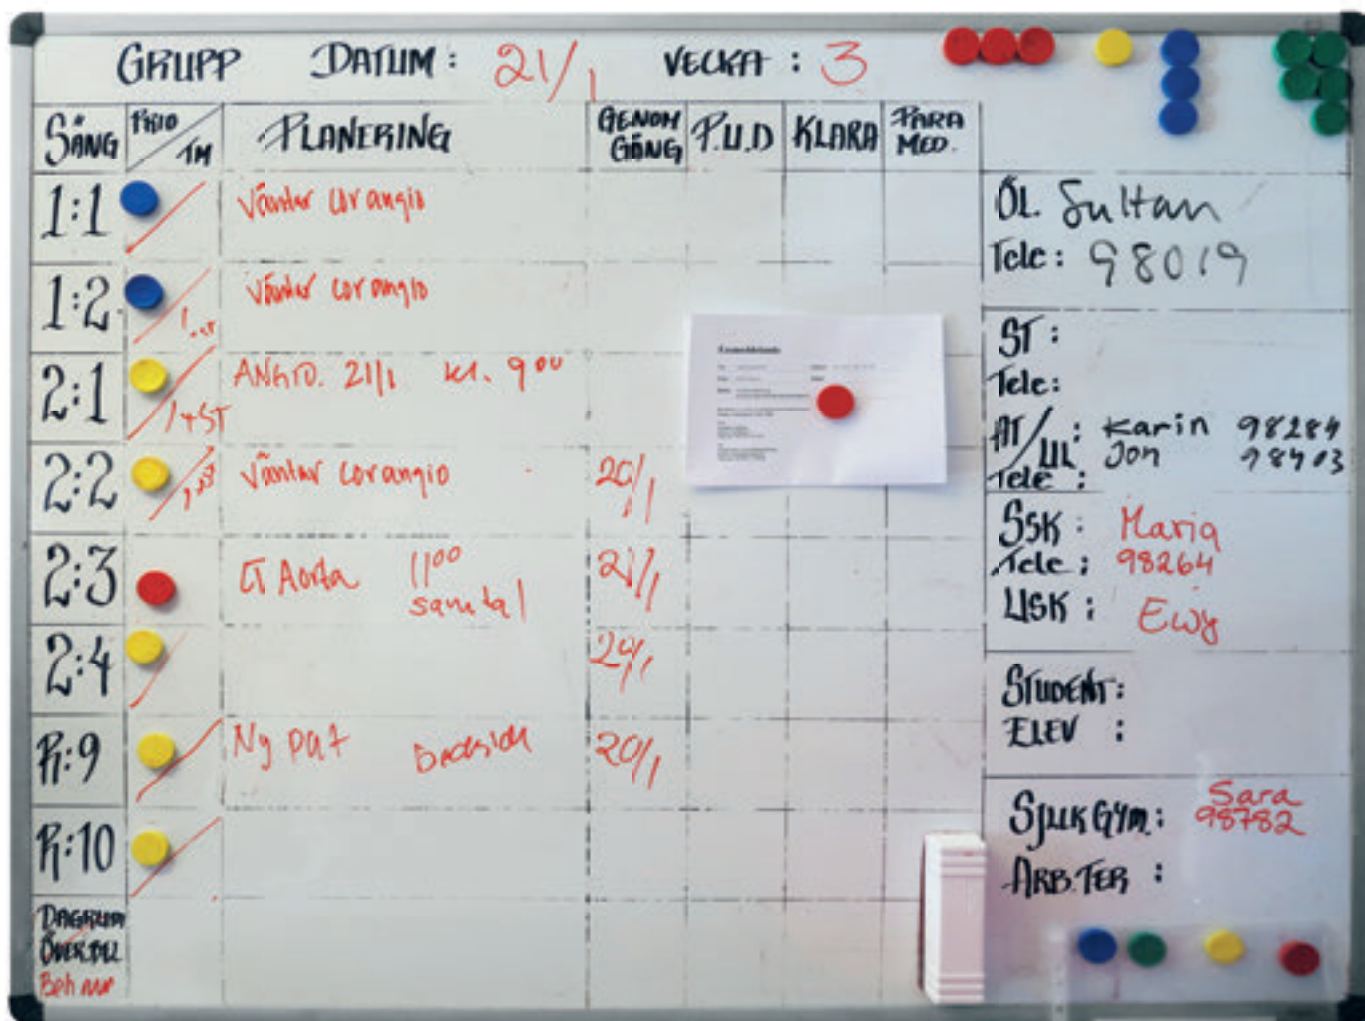 GRUPP DATUM: 21/1 VECKA: 3
SÄNG PRIO/TM PLANERING GENOM GÅNG P.U.D KLARA PARA MED.
1:1 Väntar cor angio
1:2 Väntar cor angio
2:1 1+ST ANGIO. 21/1 kl. 9 00
2:2 Väntar cor angio 20/1
2:3 CT Aorta 11 00 21/1
samtal
2:4 20/1
R:9 Ny pat 20/1
R:10
DAGRUM
ÖVERBEL
Beh
ÖL. Sultan
Tele: 98019
ST:
Tele:
AT/UL: Karin 98284
Jon 98403
Tele:
SSK: Maria
Tele: 98264
USK: Ewy
STUDENT:
ELEV:
SJUKGYM: Sara
98782
ARB.TER: